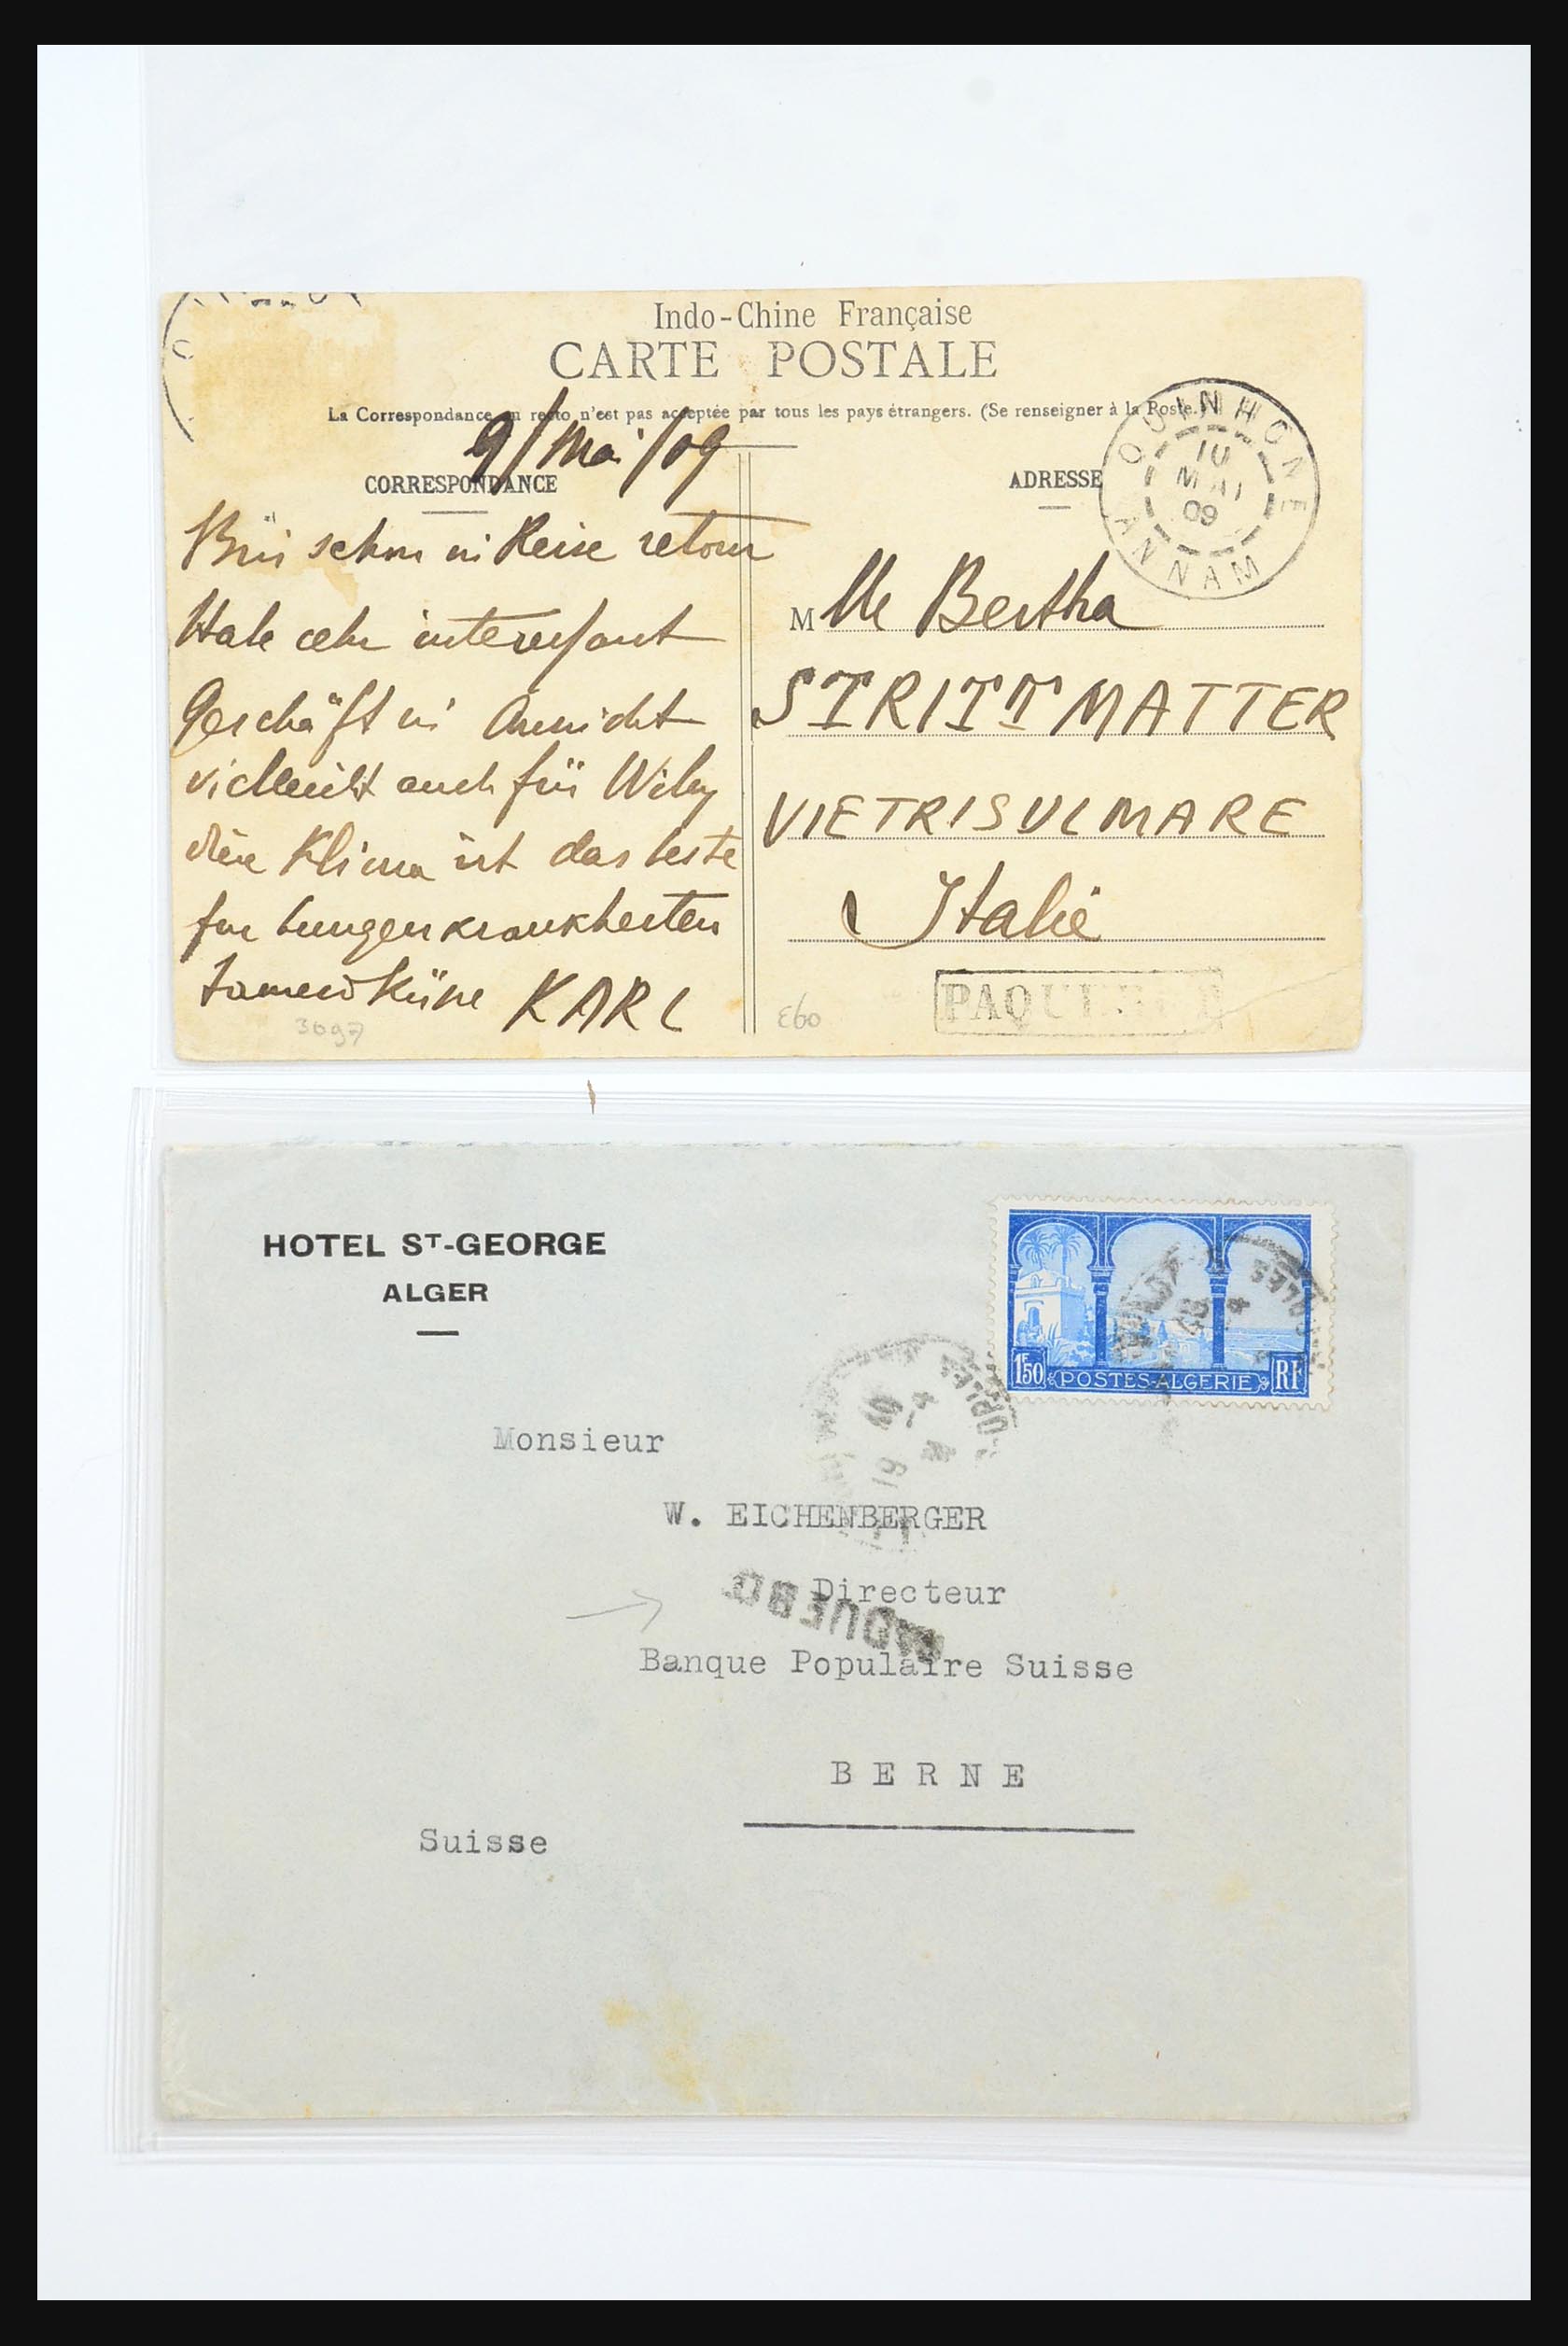 Indo-Chine Française
CARTE POSTALE
La Correspondance au recto n'est pas acceptée par tous les pays étrangers. (Se renseigner à la Poste.)
9/Mai/09
CORRESPONDANCE
ADRESSE
QUINHONE
10
MAI
09
ANNAM
Bin schon in Reise retour
Habe sehr interessant
Geschäft in Aussicht
vielleicht auch für Willy
Klima ist das beste
für Lungenkrankheiten
KARL
3097
Mlle Bertha
STRITTMATTER
VIETRISULMARE
Italie
E60
PAQUEBOT
HOTEL ST-GEORGE
ALGER
1F50 POSTES-ALGERIE RF
Monsieur
W. EICHENBERGER
Directeur
PAQUEBOT
Banque Populaire Suisse
BERNE
Suisse